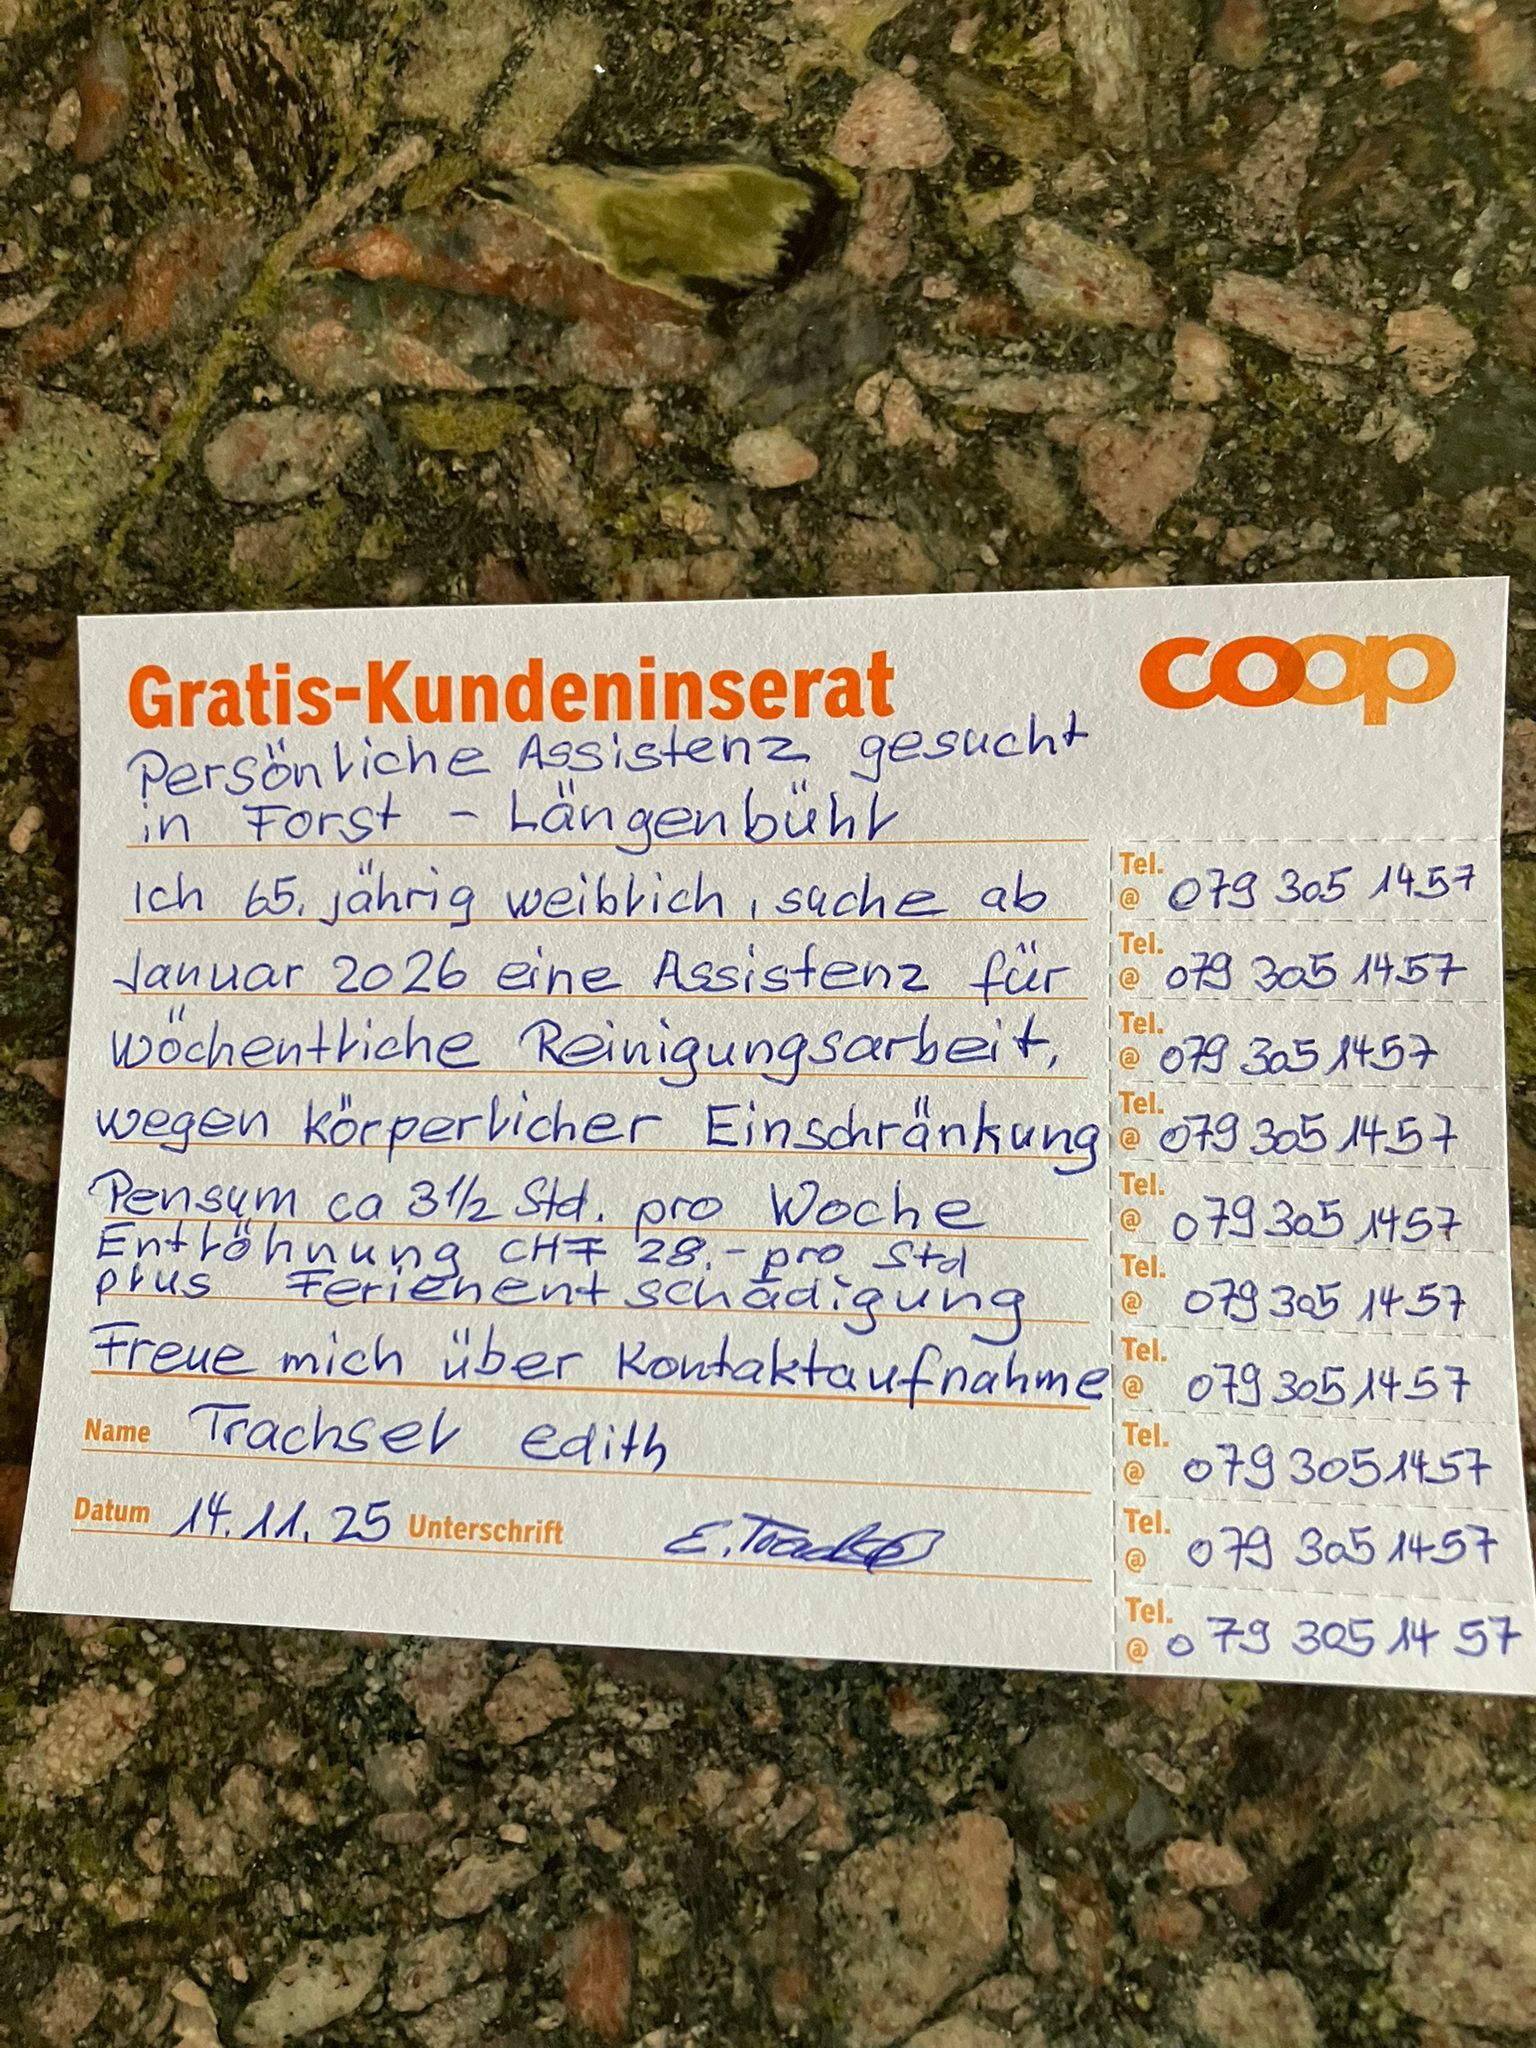 Gratis-Kundeninserat
coop
Persönliche Assistenz gesucht
in Forst - Längenbühl
Ich 65. jährig weiblich, suche ab
Januar 2026 eine Assistenz für
wöchentliche Reinigungsarbeit,
wegen körperlicher Einschränkung
Pensum ca 3 1/2 Std. pro Woche
Entlöhnung CHF 28.- pro Std
plus Ferienentschädigung
Freue mich über Kontaktaufnahme
Name Trachsel edith
Datum 14.11.25 Unterschrift E. Trachsel
Tel.
@ 079 305 14 57
Tel.
@ 079 305 14 57
Tel.
@ 079 305 14 57
Tel.
@ 079 305 14 57
Tel.
@ 079 305 14 57
Tel.
@ 079 305 14 57
Tel.
@ 079 305 14 57
Tel.
@ 079 305 14 57
Tel.
@ 079 305 14 57
Tel.
@ 079 305 14 57